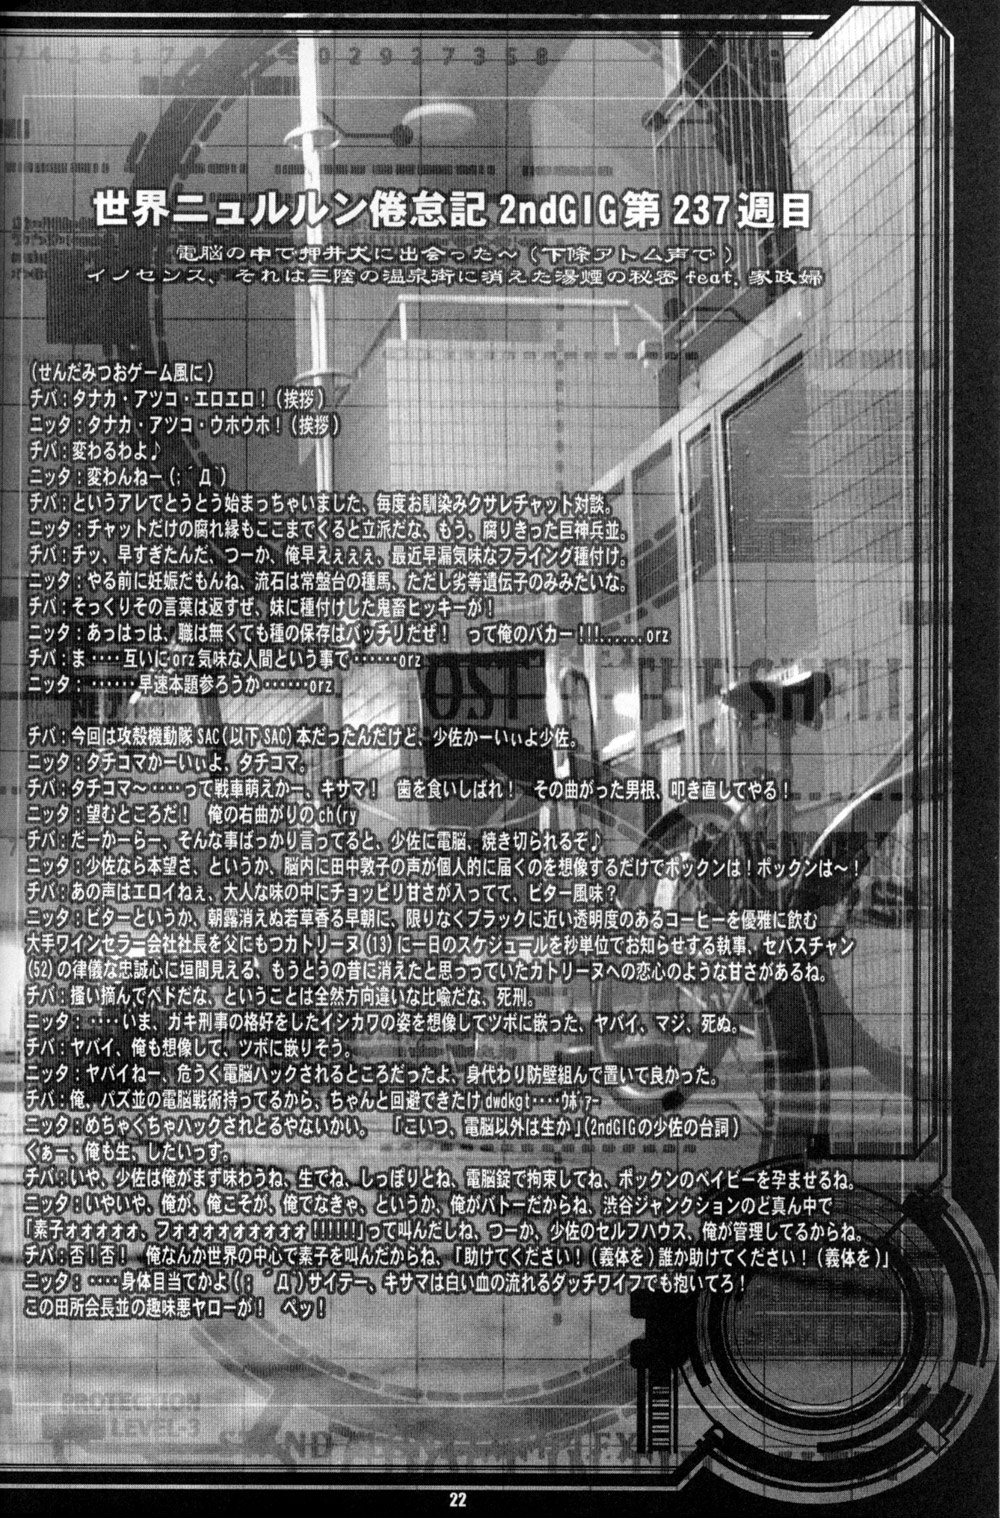 世界ニュルルン倦怠記 2ndGIG第 237週目
電脳の中で押井犬に出会った～（下條アトム声で）
イノセンス、それは三陸の温泉街に消えた湯煙の秘密 feat. 家政婦
（せんだみつおゲーム風に）
チバ：タナカ・アツコ・エロエロ！（挨拶）
ニッタ：タナカ・アツコ・ウホウホ！（挨拶）
チバ：変わるわよ♪
ニッタ：変わんねー(；´Д`)
チバ：というアレでとうとう始まっちゃいました、毎度お馴染みクサレチャット対談。
ニッタ：チャットだけの腐れ縁もここまでくると立派だな、もう、腐りきった巨神兵並。
チバ：チッ、早すぎたんだ、つーか、俺早えぇぇぇ、最近早漏気味なフライング種付け。
ニッタ：やる前に妊娠だもんね、流石は常盤台の種馬、ただし劣等遺伝子のみみたいな。
チバ：そっくりその言葉は返すぜ、妹に種付けした鬼畜ヒッキーが！
ニッタ：あっはっは、職は無くても種の保存はバッチリだぜ！　って俺のバカー!!!......orz
チバ：ま‥‥互いにorz気味な人間という事で‥‥‥orz
ニッタ：‥‥‥早速本題参ろうか‥‥‥orz
チバ：今回は攻殻機動隊SAC（以下SAC）本だったんだけど、少佐かーいぃよ少佐。
ニッタ：タチコマかーいぃよ、タチコマ。
チバ：タチコマ～‥‥って戦車萌えかー、キサマ！　歯を食いしばれ！　その曲がった男根、叩き直してやる！
ニッタ：望むところだ！　俺の右曲がりのch(ry
チバ：だーかーらー、そんな事ばっかり言ってると、少佐に電脳、焼き切られるぞ♪
ニッタ：少佐なら本望さ、というか、脳内に田中敦子の声が個人的に届くのを想像するだけでボックンは！ボックンは～！
チバ：あの声はエロイねぇ、大人な味の中にチョッピリ甘さが入ってて、ビター風味？
ニッタ：ビターというか、朝露消えぬ若草香る早朝に、限りなくブラックに近い透明度のあるコーヒーを優雅に飲む
大手ワインセラー会社社長を父にもつカトリーヌ(13)に一日のスケジュールを秒単位でお知らせする執事、セバスチャン
(52)の律儀な忠誠心に垣間見える、もうとうの昔に消えたと思っっていたカトリーヌへの恋心のような甘さがあるね。
チバ：搔い摘んでペドだな、ということは全然方向違いな比喩だな、死刑。
ニッタ：‥‥いま、ガキ刑事の格好をしたイシカワの姿を想像してツボに嵌った、ヤバイ、マジ、死ぬ。
チバ：ヤバイ、俺も想像して、ツボに嵌りそう。
ニッタ：ヤバイねー、危うく電脳ハックされるところだったよ、身代わり防壁組んで置いて良かった。
チバ：俺、パズ並の電脳戦術持ってるから、ちゃんと回避できたけdwdkgt‥‥ｳﾎﾞｧｰ
ニッタ：めちゃくちゃハックされとるやないかい。　「こいつ、電脳以外は生か」（2ndGIGの少佐の台詞）
くぁー、俺も生、したいっす。
チバ：いや、少佐は俺がまず味わうね、生でね、しっぽりとね、電脳錠で拘束してね、ボックンのベイビーを孕ませるね。
ニッタ：いやいや、俺が、俺こそが、俺でなきゃ、というか、俺がバトーだからね、渋谷ジャンクションのど真ん中で
「素子ォォォォォ、フォォォォォォォォォ!!!!!!」って叫んだしね、つーか、少佐のセルフハウス、俺が管理してるからね。
チバ：否！否！　俺なんか世界の中心で素子を叫んだからね、「助けてください！（義体を）誰か助けてください！（義体を）」
ニッタ：‥‥身体目当てかよ(；´Д`)サイテー、キサマは白い血の流れるダッチワイフでも抱いてろ！
この田所会長並の趣味悪ヤローが！　ペッ！
PROTECTION
LEVEL-3
22